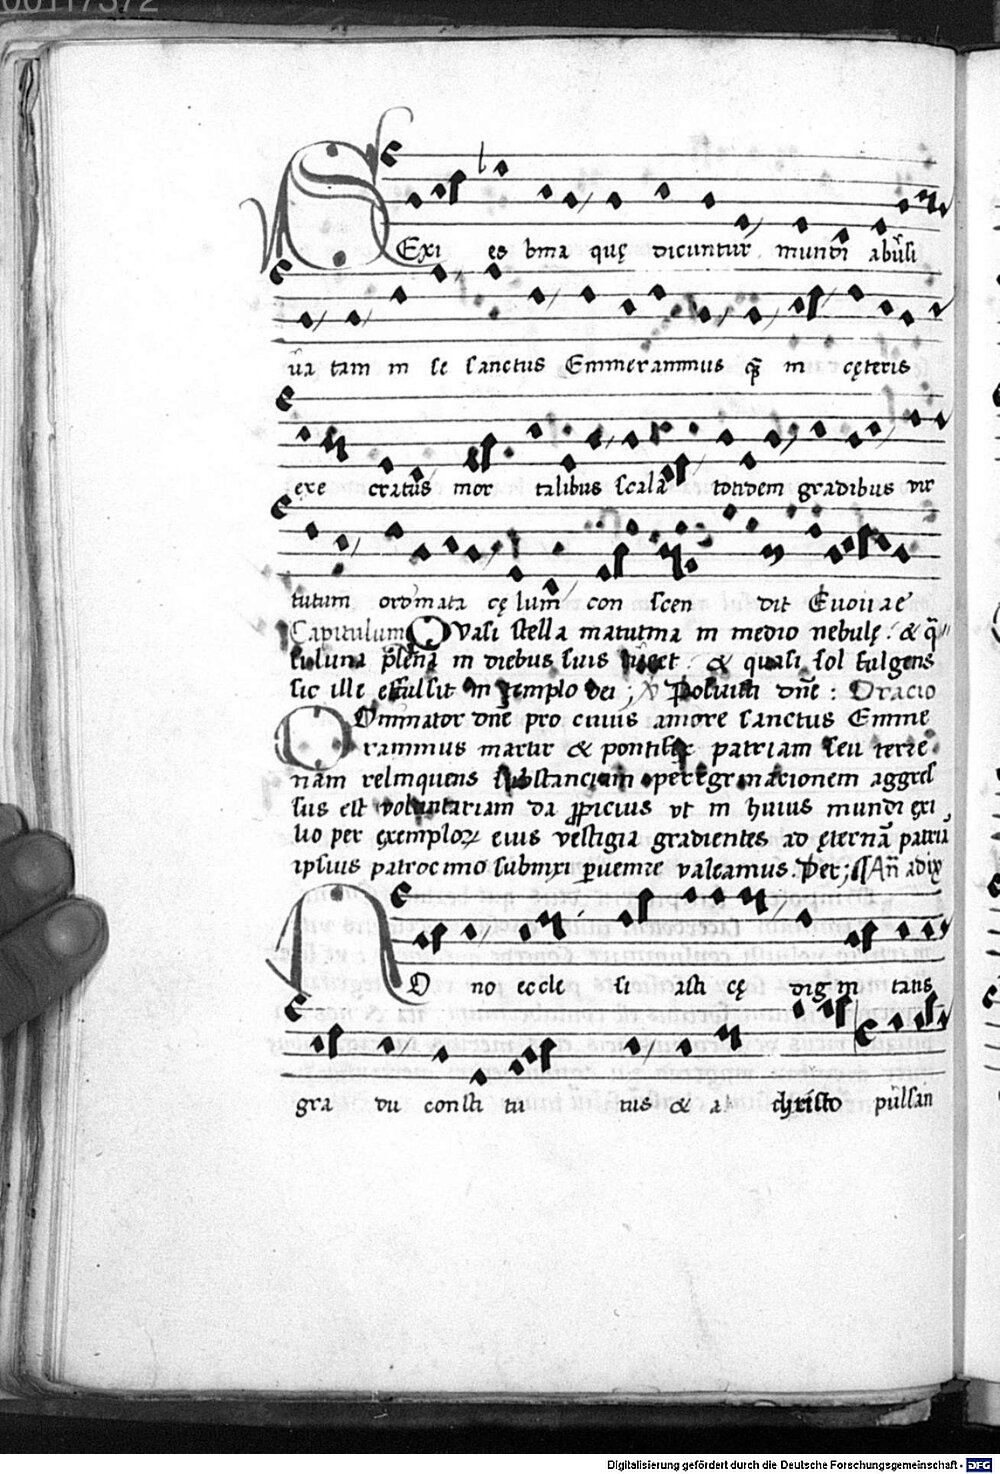 00117372
SExi es bina quę dicuntur mundi abusi
ua tam in se sanctus Emmerammus q̄ in cęteris
exe cratus mor talibus scala tandem gradibus vir
tutum ordinata cę lum con scen dit Euouae
Capitulum Quasi stella matutina in medio nebulę. & q̄
si luna plena in diebus suis lucet. & quasi sol fulgens
sic ille effulsit in templo dei; ℣ Posuisti dn̄e: Oracio
Dominator dn̄e pro cuius amore sanctus Emme
rammus martir & pontifex patriam seu terre
nam relinquens substanciam peregrinacionem aggres
sus est voluntariam da ꝓpicius vt in huius mundi exi
lio per exemploꝝ eius vestigia gradientes ad ęternā patriā
ipsius patrocinio submixi ꝑuenire valeamus. Per; An̄ ad ix
Ad no eccle si asti cę dig ni tatis
gra du consti tu tus & a christo pulsan
Digitalisierung gefördert durch die Deutsche Forschungsgemeinschaft - DFG